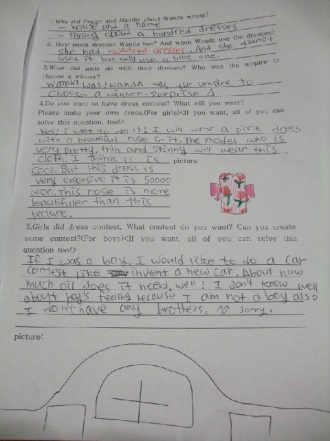 1. Why did Peggy and Maddie shout Wanda wrong?
- house and a name
- lying about a hundred dresses
2. How much dresses Wanda has? And when Wanda use the dresses?
she had hundred dresses. And she doesn't
used it but only use a blue one.
3. What did girls do with their dresses? Who was the umpire to
choose a winner?
Wanda was the umpire to
choose a winner. surprise
4. Do you want to have dress contest? What will you wear?
Please make your own dress.(For girls)(If you want, all of you can
solve this question, too!)
Yes! I want to do it! I will wear a pink dress
with a beautiful rose in it. The model who is
very pretty, thin and skinny will wear this
cloth. I think it is
picture
cool. But this dress is
very expensive it is 50000
won. This rose is more
beautifuler than this
picture.
5. Girls did dress contest. What contest do you want? Can you create
some contest?(For boys)(If you want, all of you can solve this
question too!)
If I was a boy, I would like to do a car
contest like invent a new car. About how
much oil does it need. well! I don't know well
about boy's feeling because I am not a boy also
I don't have any brothers. Sorry.
picture: